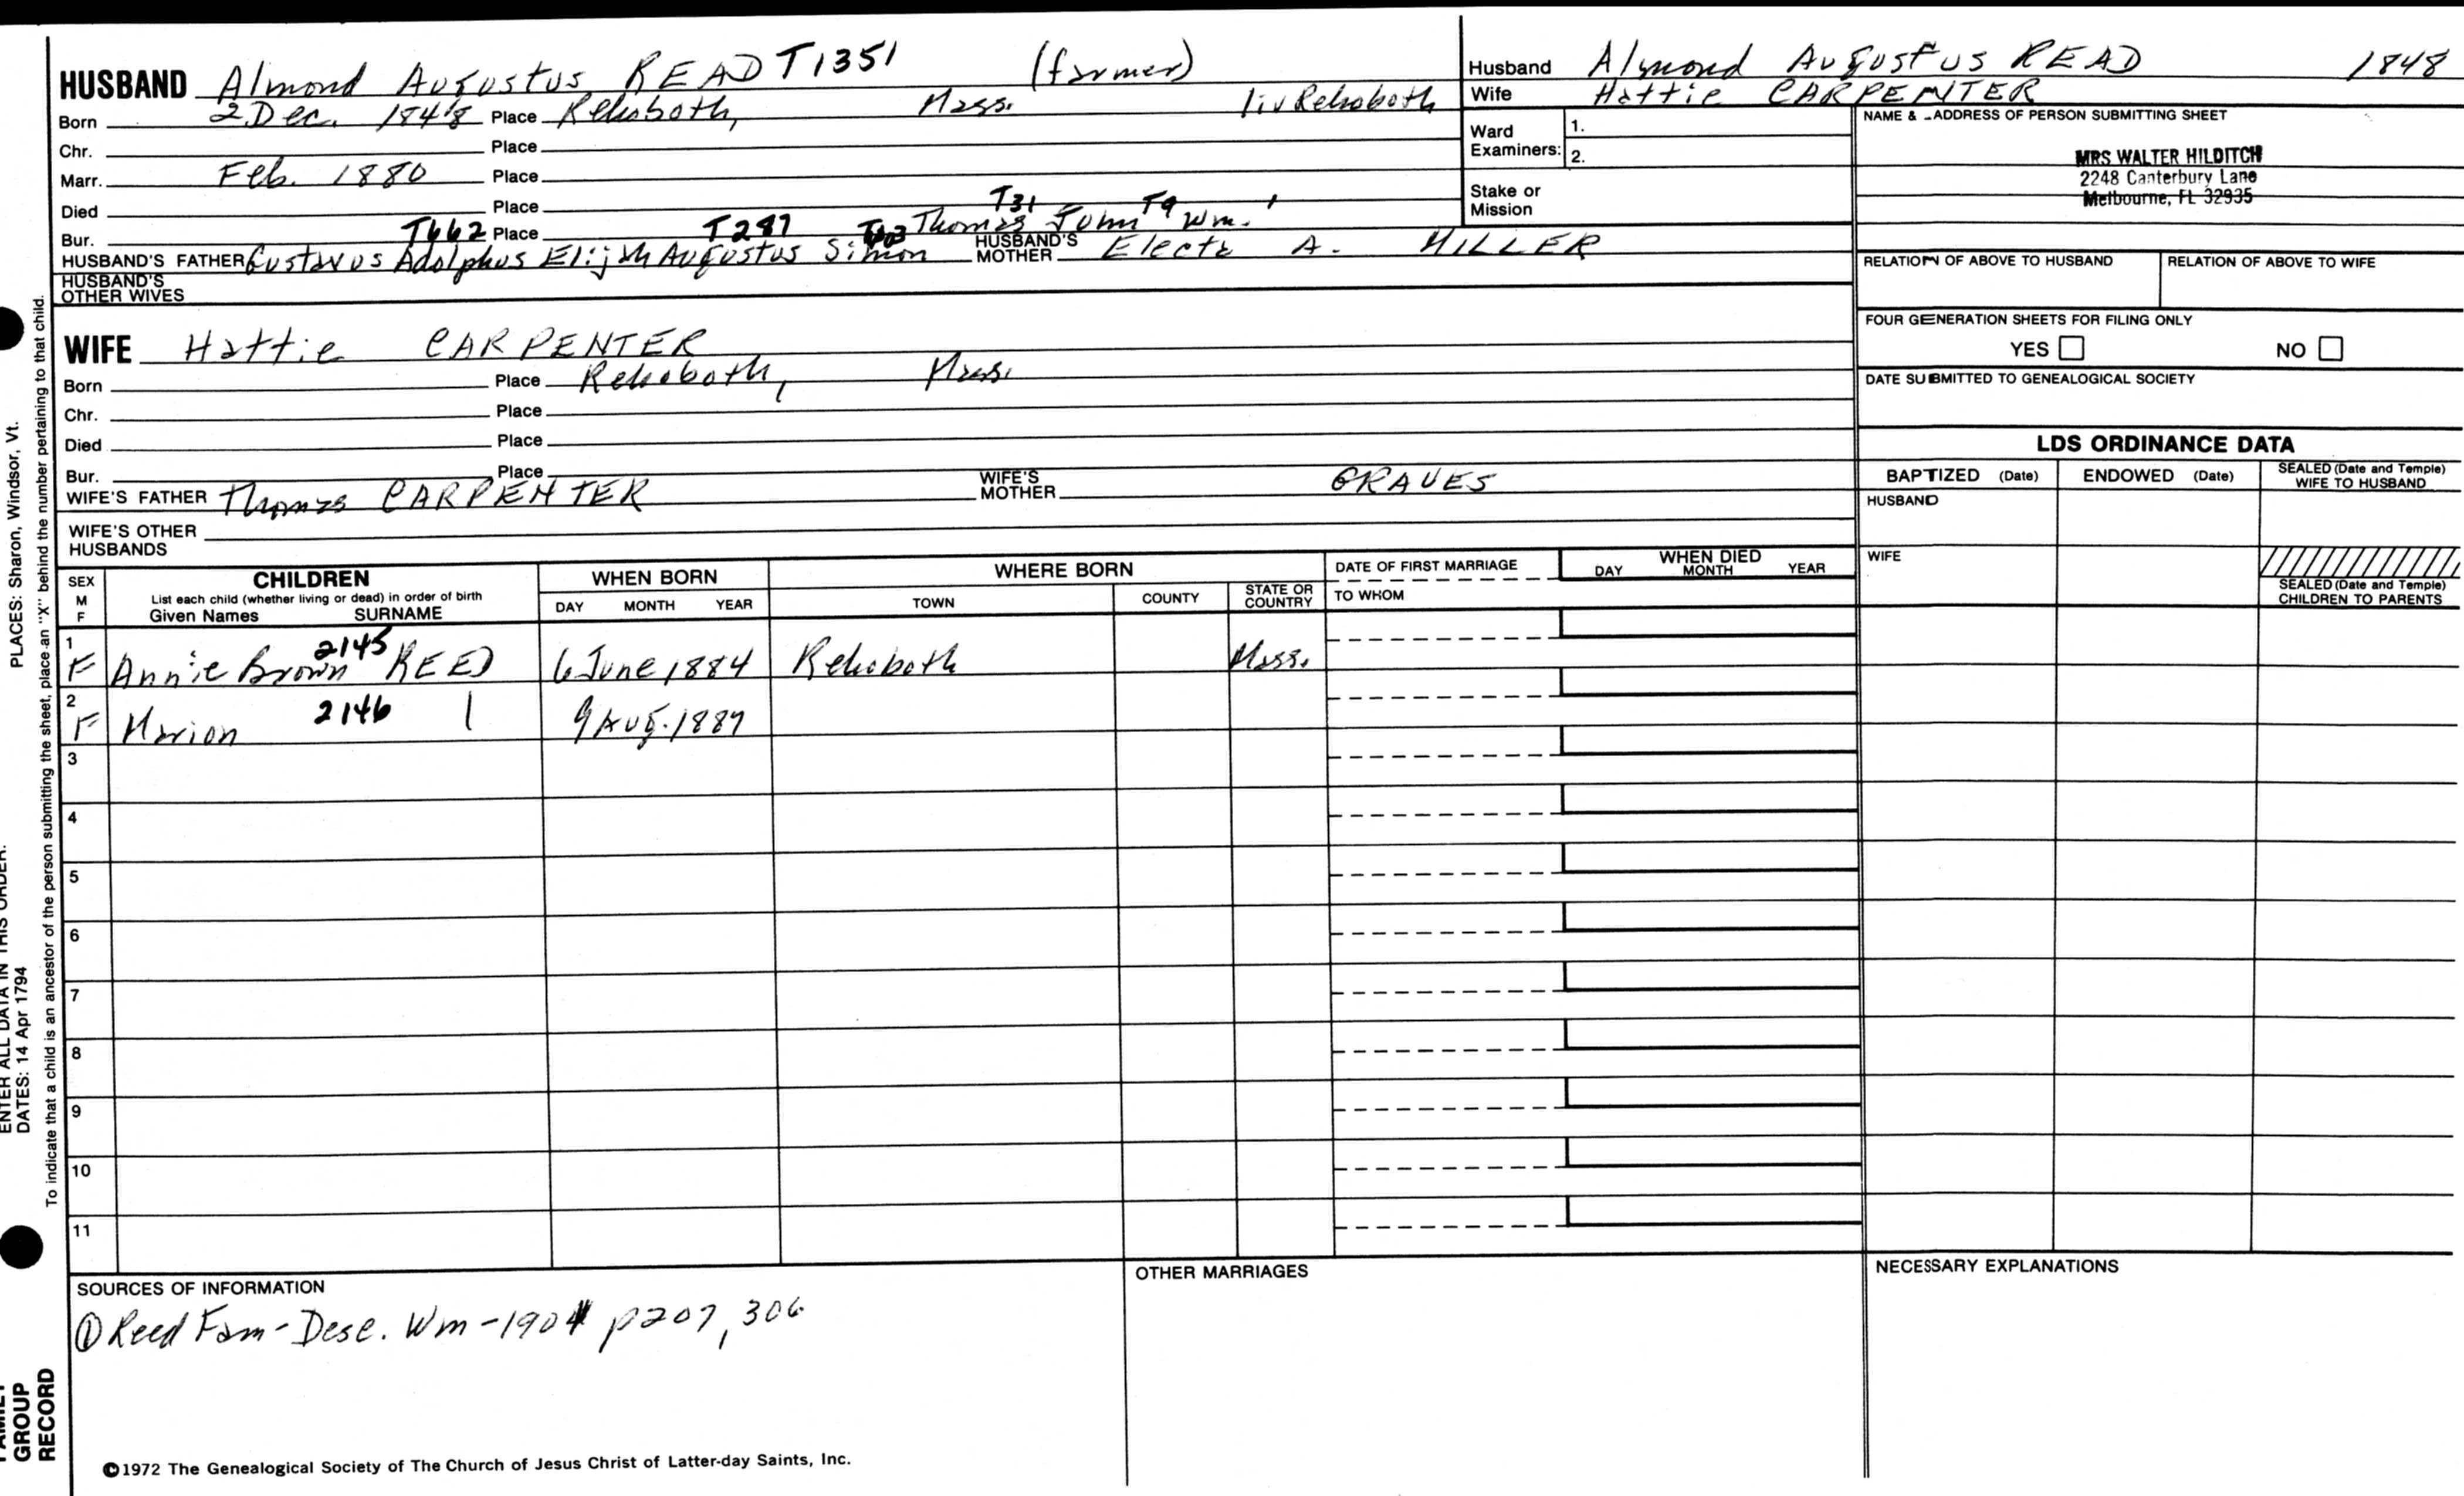 HUSBAND Almond Augustus READ T1351 (farmer)
Born 2 Dec. 1848 Place Rehoboth, Mass. liv Rehoboth
Chr. Place
Marr. Feb. 1880 Place
Died Place
Bur. Place
T662 T287 T103 T31 T9 1
HUSBAND'S FATHER Gustavus Adolphus Elijah Augustus Simon Thomas John Wm.
HUSBAND'S MOTHER Electa A. MILLER
HUSBAND'S OTHER WIVES
Husband Almond Augustus READ 1848
Wife Hattie CARPENTER
Ward Examiners: 1.
2.
Stake or Mission
NAME & ADDRESS OF PERSON SUBMITTING SHEET
MRS WALTER HILDITCH
2248 Canterbury Lane
Melbourne, FL 32935
RELATION OF ABOVE TO HUSBAND RELATION OF ABOVE TO WIFE
FOUR GENERATION SHEETS FOR FILING ONLY
YES NO
DATE SUBMITTED TO GENEALOGICAL SOCIETY
WIFE Hattie CARPENTER
Born Place Rehoboth, Mass.
Chr. Place
Died Place
Bur. Place
WIFE'S FATHER Thomas CARPENTER WIFE'S MOTHER GRAVES
WIFE'S OTHER HUSBANDS
LDS ORDINANCE DATA
BAPTIZED (Date) ENDOWED (Date) SEALED (Date and Temple) WIFE TO HUSBAND
HUSBAND
WIFE
SEALED (Date and Temple) CHILDREN TO PARENTS
SEX M F
CHILDREN
List each child (whether living or dead) in order of birth
Given Names SURNAME
WHEN BORN
DAY MONTH YEAR
WHERE BORN
TOWN COUNTY STATE OR COUNTRY
DATE OF FIRST MARRIAGE
TO WHOM
WHEN DIED
DAY MONTH YEAR
1 F Annie Brown 2145 REED 6 June 1884 Rehoboth Mass.
2 F Marion 2146 | 9 Aug. 1887
3
4
5
6
7
8
9
10
11
SOURCES OF INFORMATION
① Reed Fam - Desc. Wm - 1901 p207, 306
OTHER MARRIAGES
NECESSARY EXPLANATIONS
©1972 The Genealogical Society of The Church of Jesus Christ of Latter-day Saints, Inc.
FAMILY GROUP RECORD
ENTER ALL DATA IN THIS ORDER:
DATES: 14 Apr 1794
PLACES: Sharon, Windsor, Vt.
To indicate that a child is an ancestor of the person submitting the sheet, place an "X" behind the number pertaining to that child.